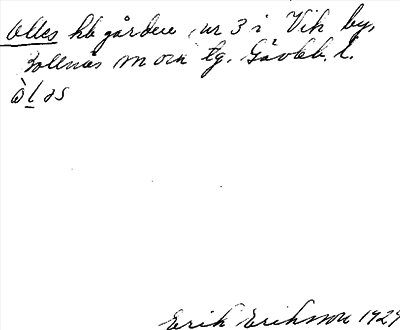 Olles hb gården, nr 3 i Vik by,
Bollnäs sn och tg. Gävleb. l.
òlas
Erik Eriksson 1929